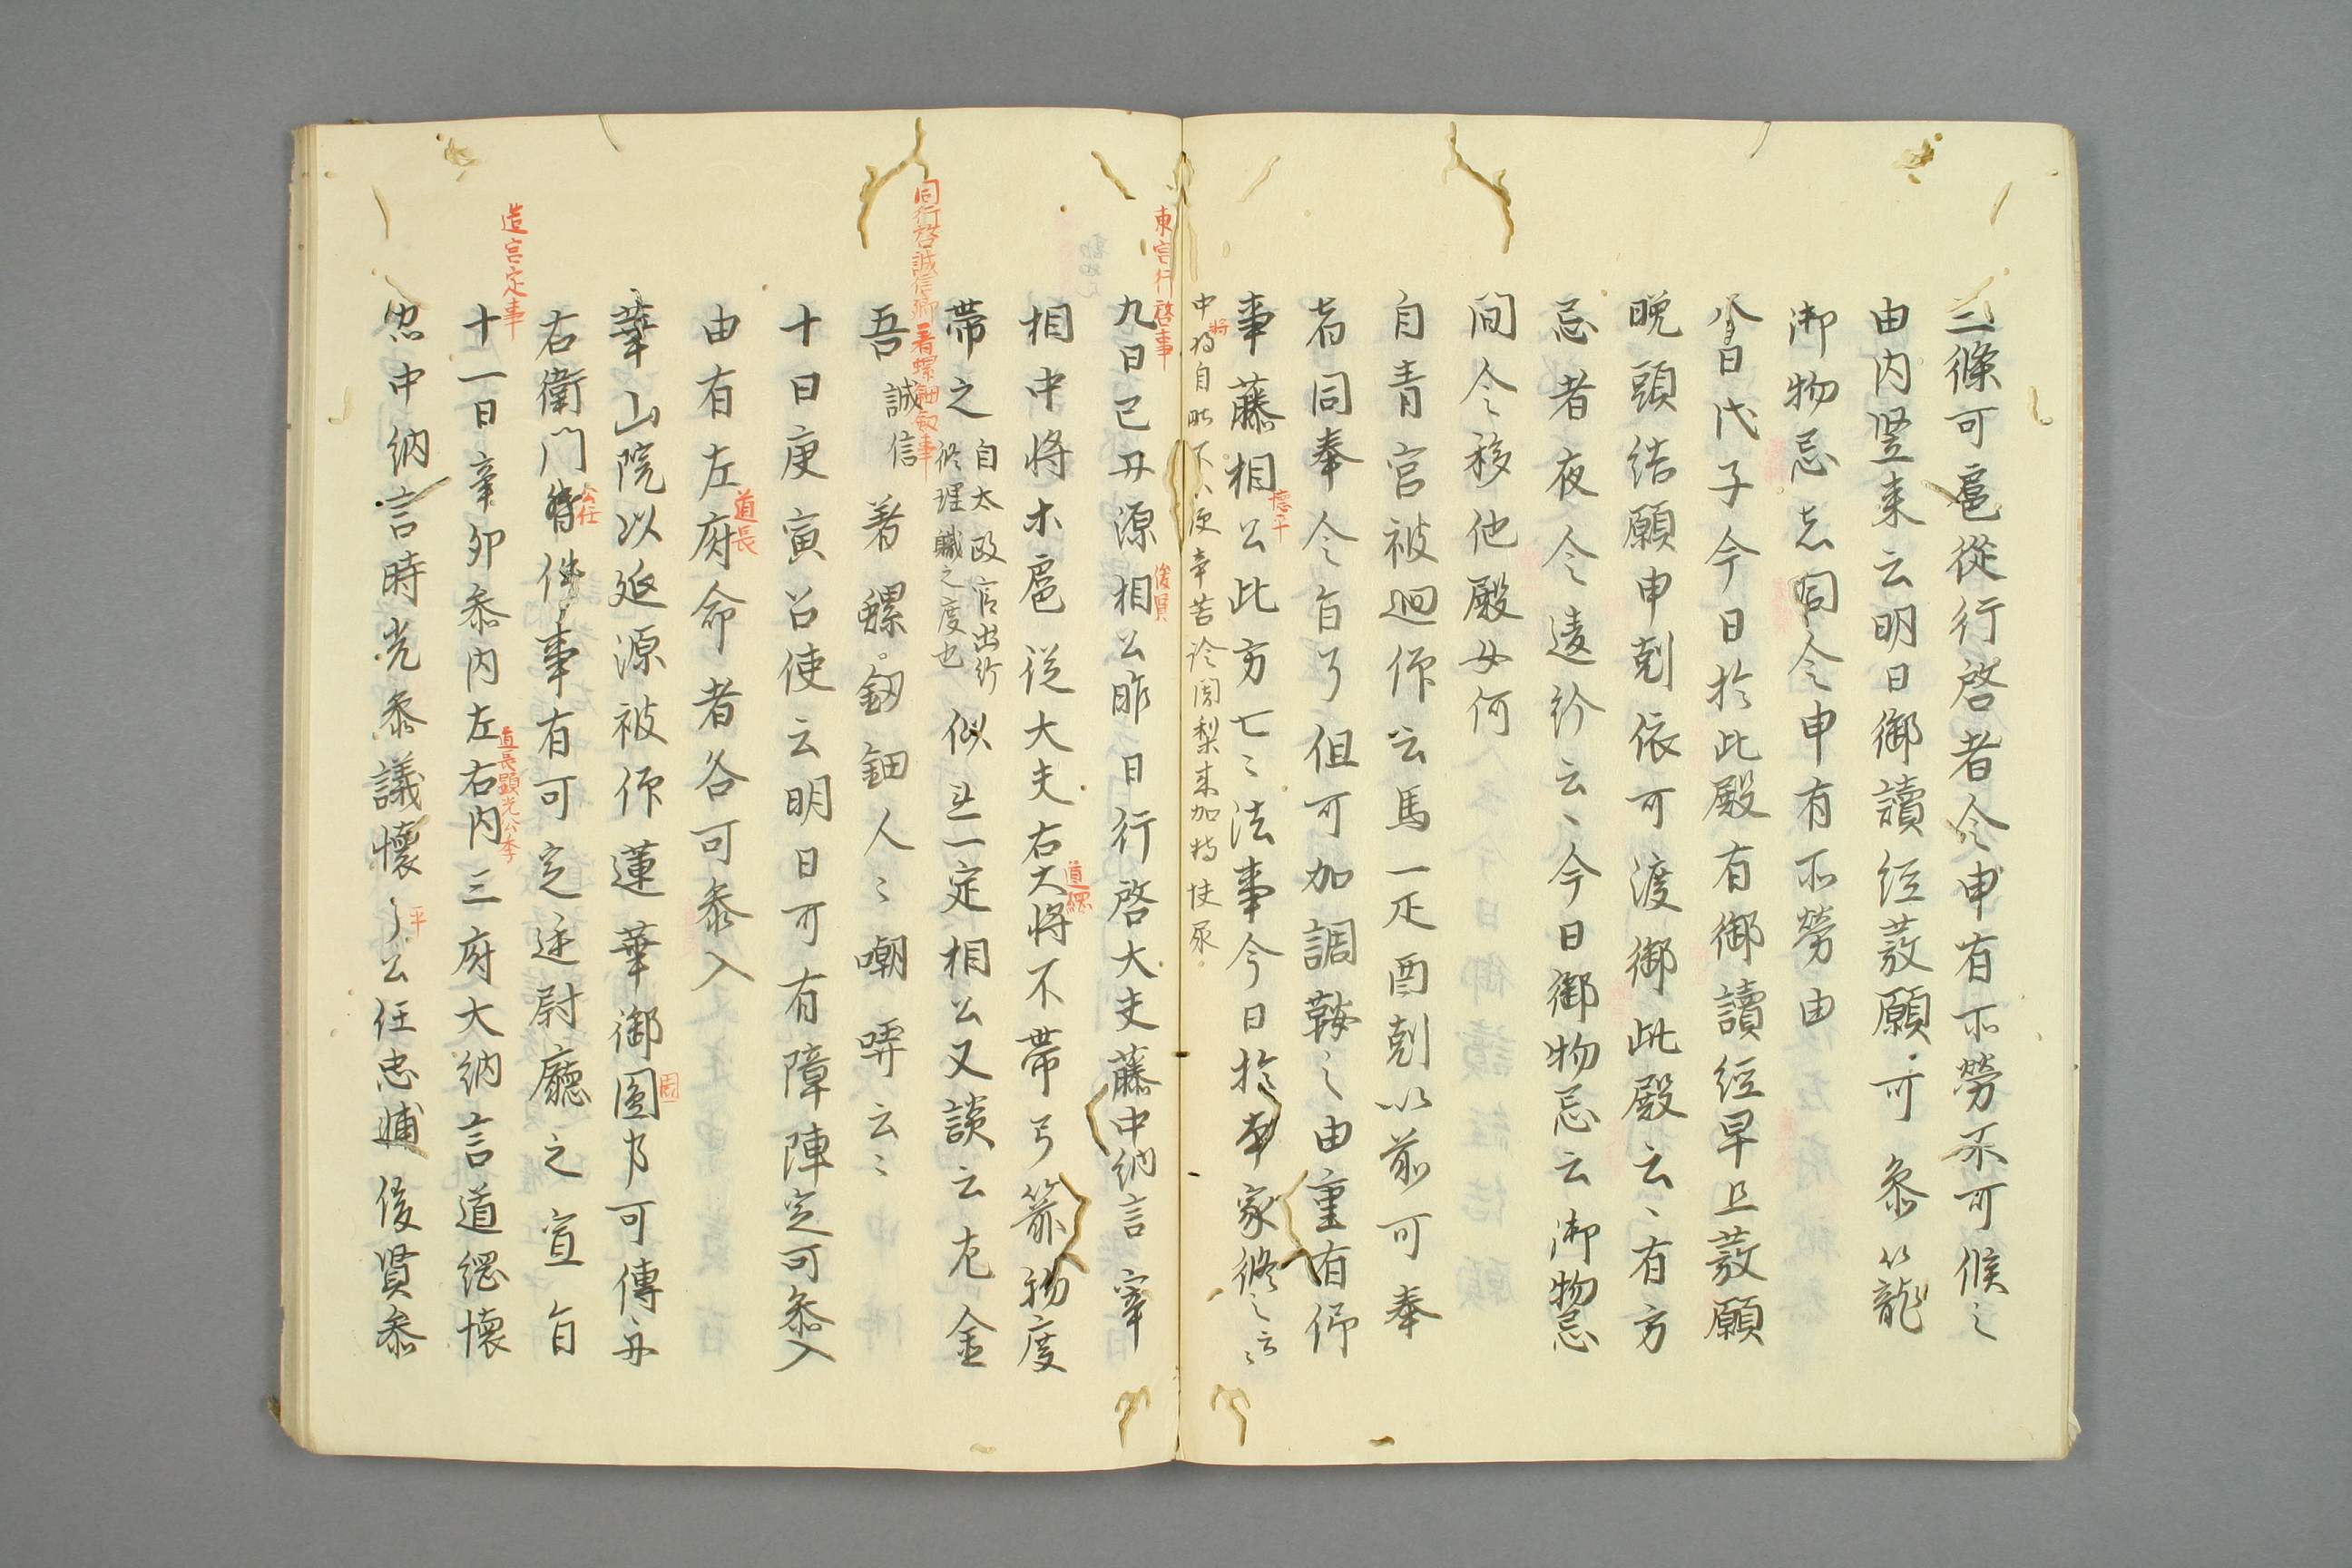 三條可扈從行啓者令申有所勞不可候之
由内竪来云明日御讀經發願可參以籠
御物忌志同令申有所勞由
八日戊子今日於此殿有御讀經早旦發願
晩頭結願申剋依可渡御此殿云々有方
忌者夜令違給云々今日御物忌云御物忌
間令移他殿如何
自青宮被廻仰云馬一疋酉剋以前可奉
者同奉令旨了但可加調鞍之由重有仰
事藤相公此方七々法事今日於本家修之云々
懷平
中將自昨不便辛苦諗闍梨来加持快尿
將
東宮行啓事
九日己丑源相公昨日行啓大夫藤中納言宰
俊賢
相中将木扈従大夫右大将不帯弓箭物度
道綱
帶之自太政官出行
修理職之度也
似無一定相公又談云尤金
同行啓誠信卿着螺鈿釼事
吾誠信着螺釼鈿人々嘲哢云々
十日庚寅召使云明日可有障陣定可參入
由有左府命者各可參入
道長
華山院以延源被仰蓮華御圀忌可傳舟
周
右衛門督件事有可定延尉廳之宣旨
公任
造宮定事
十一日辛卯參内左右内三府大納言道綱懷
道長顕光公季
忠中納言時光參議懷々公任忠輔俊賢參
平